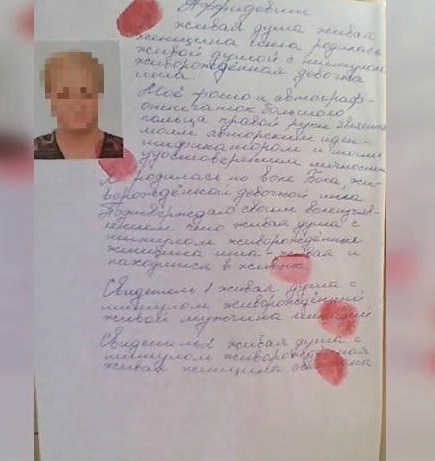 Аффидевит
живая душа живая
женщина инна родилась
живой душой с титулом
живорождённая девочка
инна.
Моё фото и автограф-
отпечаток большого
пальца правой руки является
моим авторским иден-
тификатором и моим
удостоверением личности
Я родилась по воле Бога, жи-
ворождённой девочкой инна
Подтверждаю своим
что живая душа с
титулом живорождённая
женщина инна - живая и
находится в живых
Свидетель 1 живая душа с
титулом живорождённый
живой мужчина
Свидетель 2 живая душа с
титулом живорождённая
живая женщина